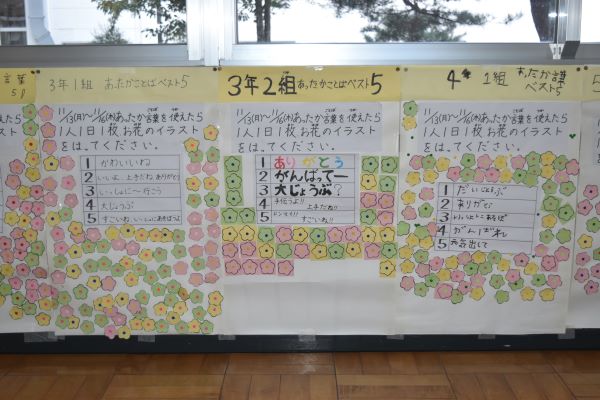 言葉
5
3年1組 あたたかことばベスト5
11/13(月)〜11/16(木)あったか言葉を使えたら
1人1日1枚お花のイラスト
をはってください。
1 かわいいね
2 いいよ、上手だね、ありがとう
3 いっしょに〜行こう
4 大じょうぶ
5 すごいね、いっしょにあそぼうよ
3年2組あったかことばベスト5
11/13(月)〜11/16(木)あったか言葉を使えたら
1人1日1枚お花のイラスト
をはってください。
1 ありがとう
2 がんばってー
3 大じょうぶ?
4 手伝うよ!! 上手だね!!
5 ドンマイ!! すごいね!!
4年1組 あたたか言葉
ベスト5
11/13(月)〜11/16(木)あったか言葉を使えたら
1人1日1枚お花のイラスト
をはってください。
1 だいじょうぶ
2 ありがとう
3 いっしょにあそぼ
4 がんばれ
5 元気出して
5